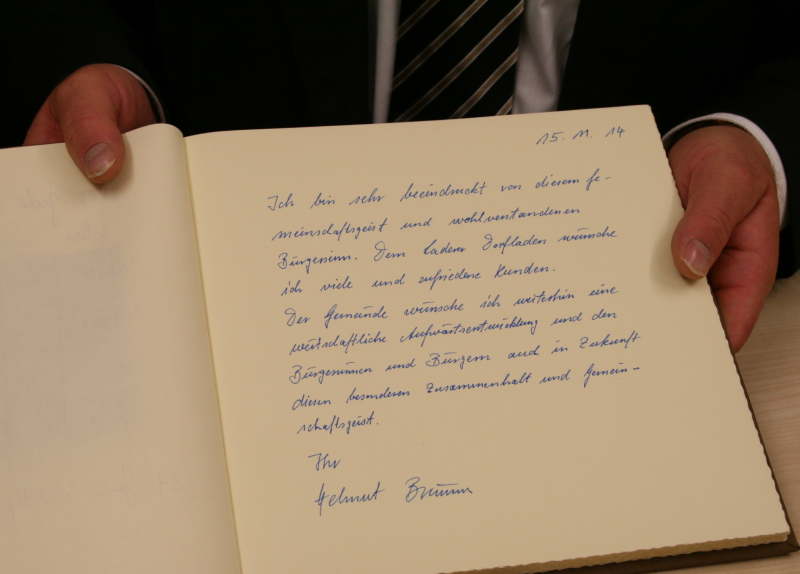 15. 11. 14
Ich bin sehr beeindruckt von diesem Ge-
meinschaftsgeist und wohlverstandenen
Bürgersinn. Dem Laderer Dorfladen wünsche
ich viele und zufriedene Kunden.
Der Gemeinde wünsche ich weiterhin eine
wirtschaftliche Aufwärtsentwicklung und den
Bürgerinnen und Bürgern auch in Zukunft
diesen besonderen Zusammenhalt und Gemein-
schaftsgeist.
Ihr
Helmut Brunner